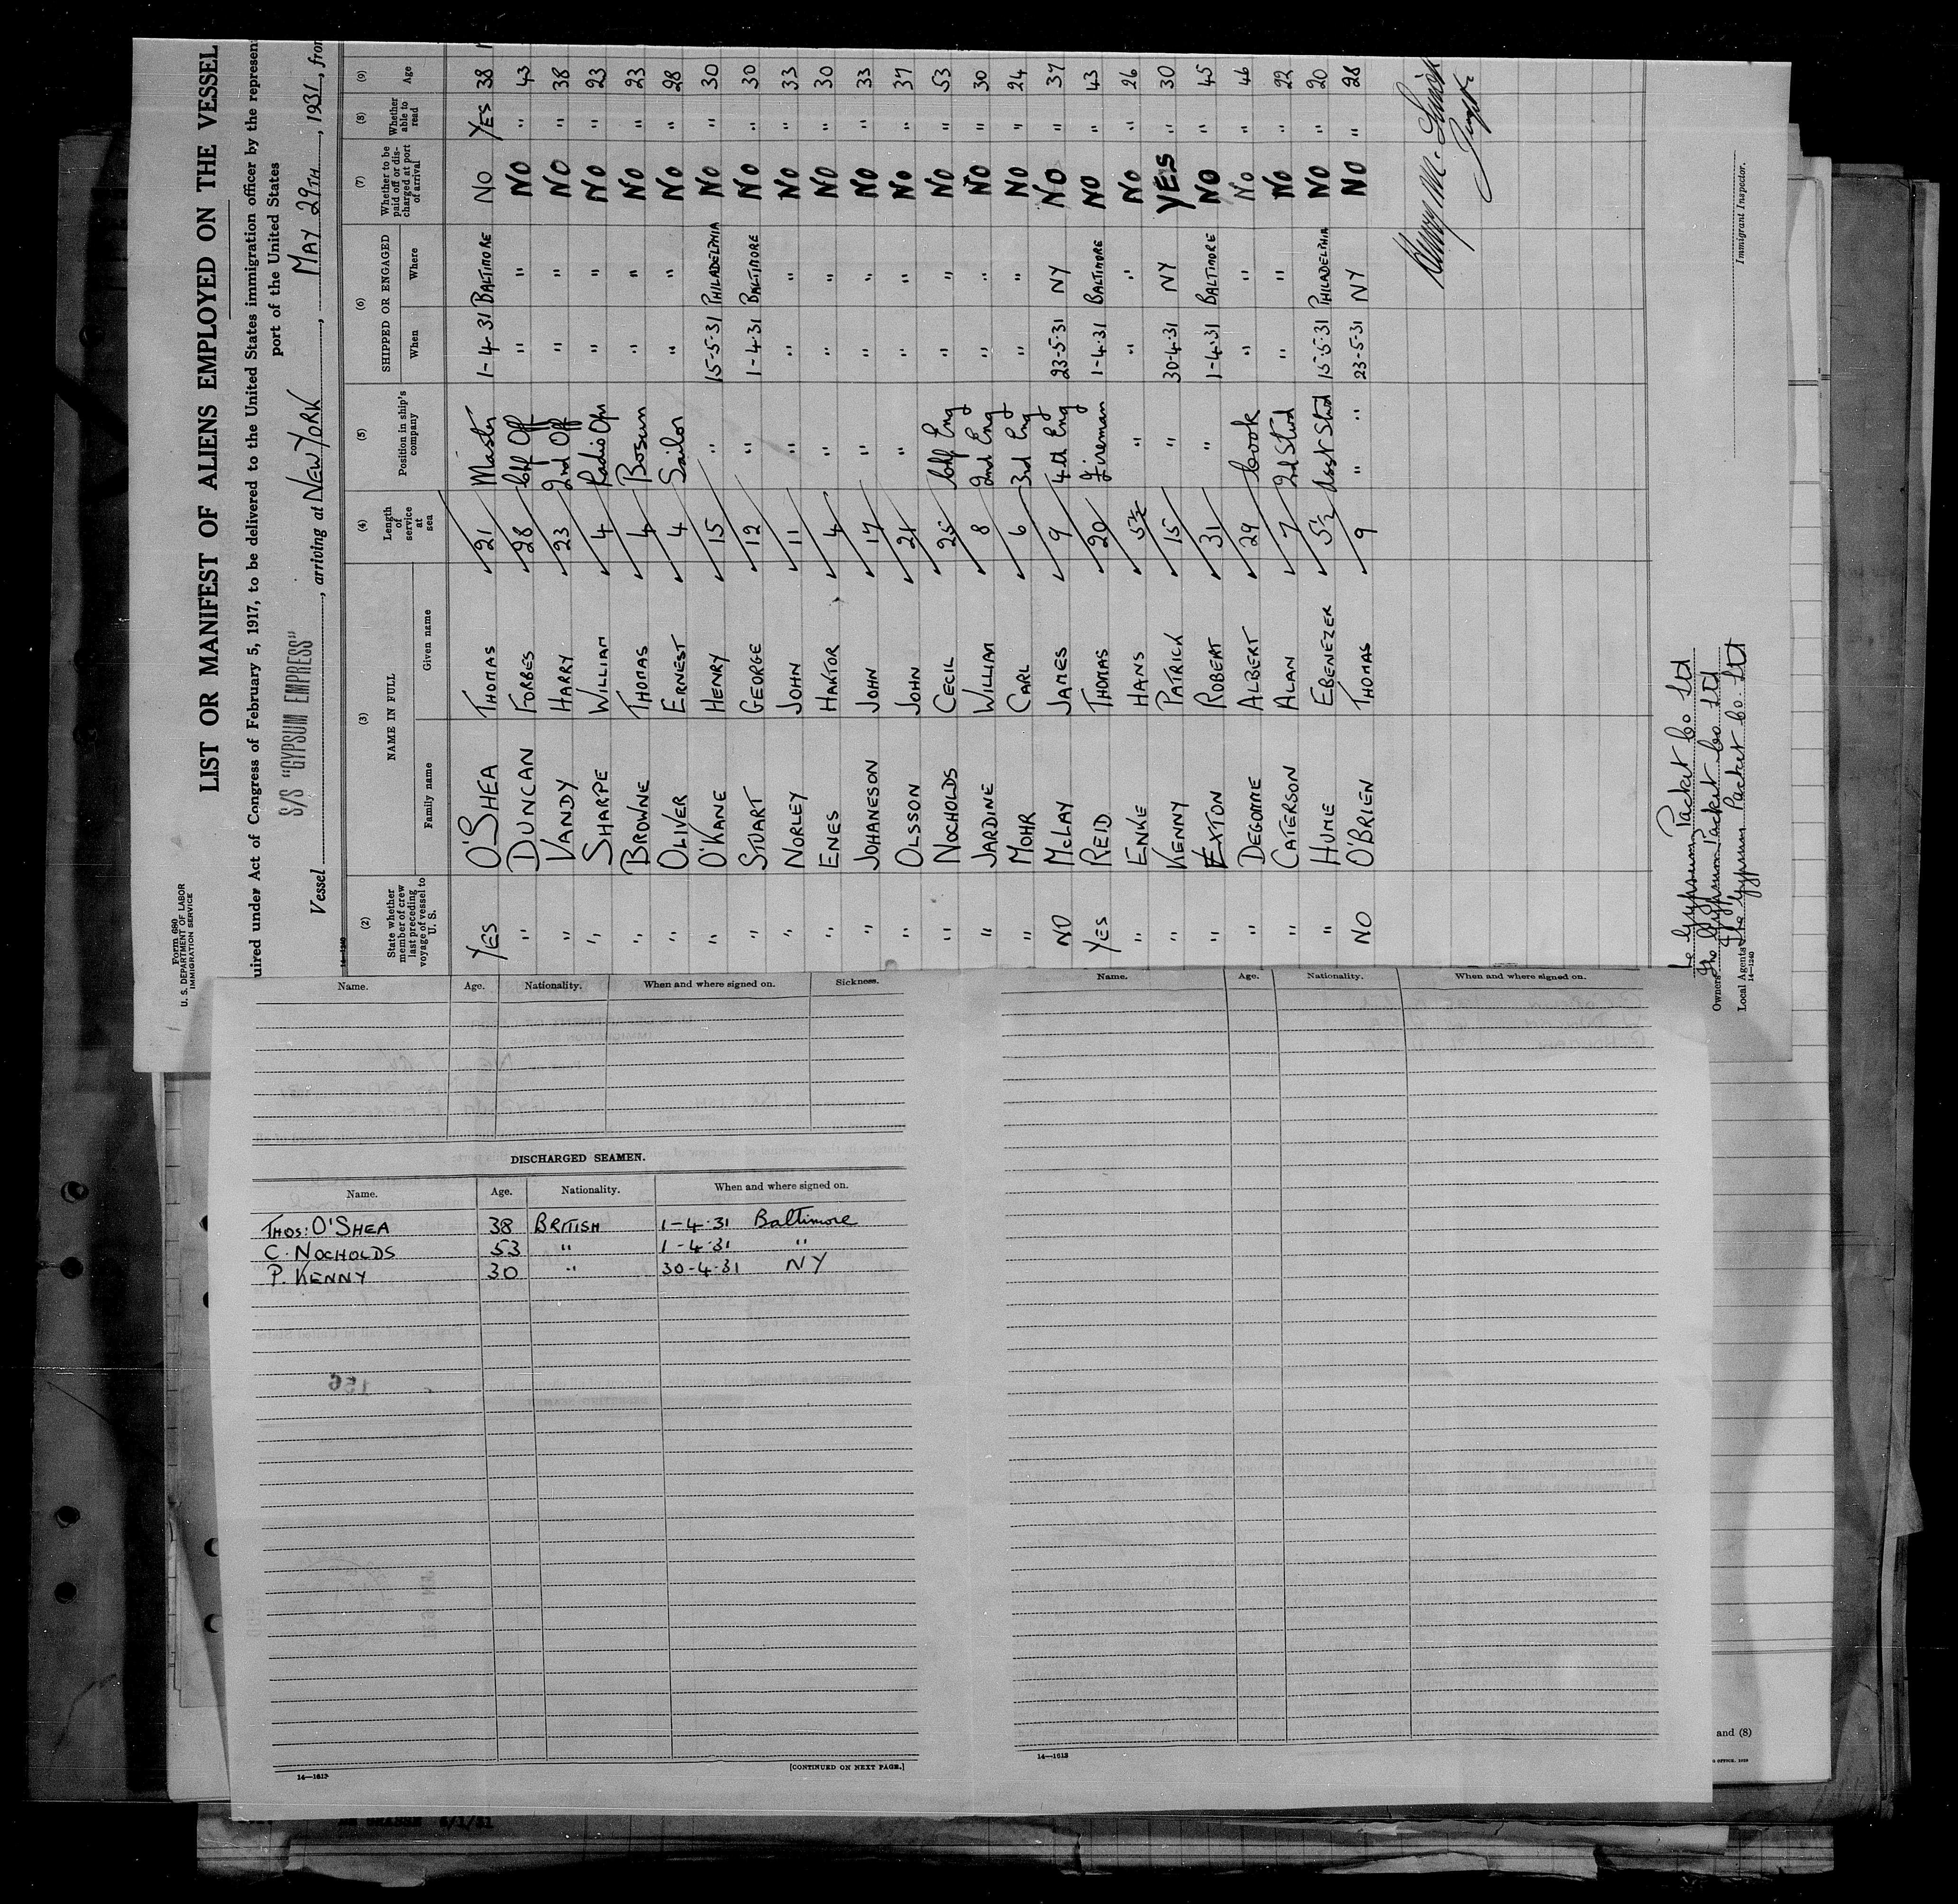 Form 680
U. S. DEPARTMENT OF LABOR
IMMIGRATION SERVICE
LIST OR MANIFEST OF ALIENS EMPLOYED ON THE VESSEL
uired under Act of Congress of February 5, 1917, to be delivered to the United States immigration officer by the represen
port of the United States
Vessel S/S "GYPSUM EMPRESS", arriving at NEW YORK, MAY 29TH, 1931, from
14-1240
(2) (3) (4) (5) (6) (7) (8) (9)
State whether member of crew last preceding voyage of vessel to U. S. NAME IN FULL Family name Given name Length of service at sea Position in ship's company SHIPPED OR ENGAGED When Where Whether to be paid off or discharged at port of arrival Whether able to read Age
YES O'SHEA THOMAS 21 Master 1-4-31 BALTIMORE NO YES 38
" DUNCAN FORBES 28 Chf Off " " NO " 43
" VANDY HARRY 23 2nd Off " " NO " 38
" SHARPE WILLIAM 4 Radio Opr " " NO " 23
" BROWNE THOMAS 4 Bosun " " NO " 23
" OLIVER ERNEST 4 Sailor " " NO " 28
" O'KANE HENRY 15 " 15-5-31 PHILADELPHIA NO " 30
" STUART GEORGE 12 " 1-4-31 BALTIMORE NO " 30
" NORLEY JOHN 11 " " " NO " 33
" ENES HAKTOR 4 " " " NO " 30
" JOHANESON JOHN 17 " " " NO " 33
" OLSSON JOHN 21 " " " NO " 37
" NOCHOLDS CECIL 25 Chf Eng " " NO " 53
" JARDINE WILLIAM 8 2nd Eng " " NO " 30
" MOHR CARL 6 3rd Eng " " NO " 24
NO McLAY JAMES 9 4th Eng 23-5-31 NY NO " 37
YES REID THOMAS 20 Fireman 1-4-31 BALTIMORE NO " 43
" ENKE HANS 5½ " " " NO " 26
" KENNY PATRICK 15 " 30-4-31 NY YES " 30
" EXTON ROBERT 31 " 1-4-31 BALTIMORE NO " 45
" DEGOMME ALBERT 29 Cook " " No " 46
" CATERSON ALAN 7 2d Stwd " " NO " 22
" HUME EBENEZER 5½ Asst Stwd 15-5-31 PHILADELPHIA NO " 20
NO O'BRIEN THOMAS 9 " " 23-5-31 NY NO " 28
Immigrant Inspector.
Gypsum Packet Co Ltd
Owners The Gypsum Packet Co Ltd
Local Agents The Gypsum Packet Co. Ltd
14-1240
Name. Age. Nationality. When and where signed on. Sickness.
DISCHARGED SEAMEN.
Name. Age. Nationality. When and where signed on.
THOS: O'SHEA 38 BRITISH 1-4-31 Baltimore
C. NOCHOLDS 53 " 1-4-31 "
P. KENNY 30 " 30-4-31 NY
156
14-1613
[CONTINUED ON NEXT PAGE.]
Name. Age. Nationality. When and where signed on.
14-1613
and (8)